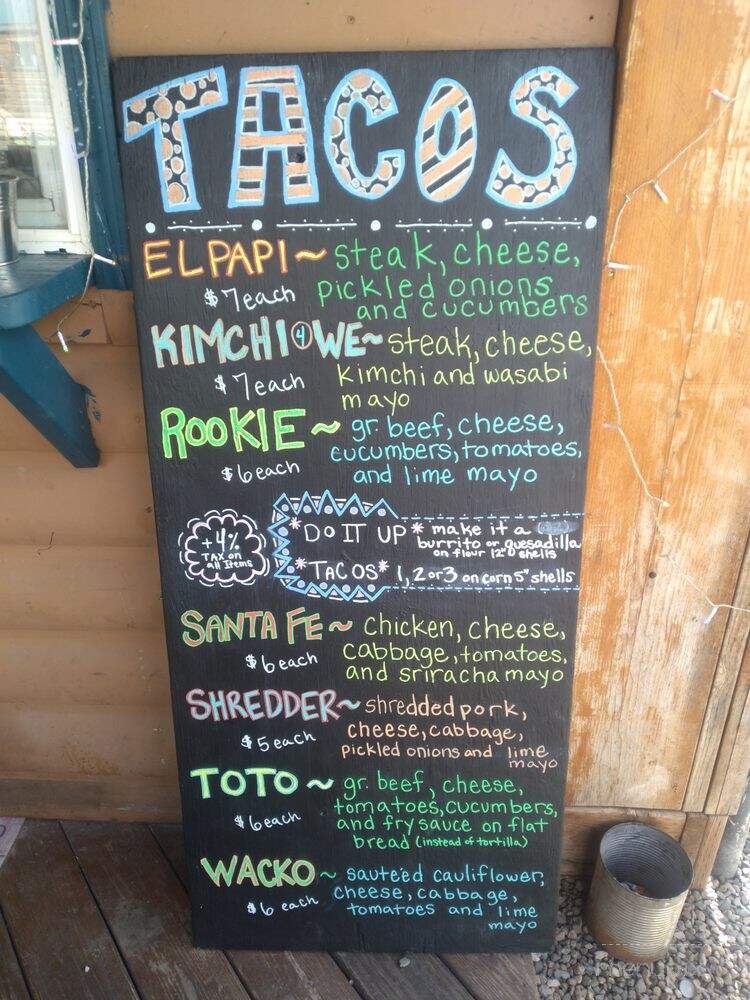 TACOS
EL PAPI ~ steak, cheese,
$7 each pickled onions
and cucumbers
KIMCHI 4 WE ~ steak, cheese,
$7 each kimchi and wasabi
mayo
ROOKIE ~ gr. beef, cheese,
cucumbers, tomatoes,
$6 each and lime mayo
*DO IT UP* make it a
burrito or quesadilla
on flour 12" shells
+4%
TAX on
all Items
*TACOS* 1, 2 or 3 on corn 5" shells
SANTA FE ~ chicken, cheese,
$6 each cabbage, tomatoes,
and sriracha mayo
SHREDDER ~ shredded pork,
$5 each cheese, cabbage,
pickled onions and lime
mayo
TOTO ~ gr. beef, cheese,
tomatoes, cucumbers,
$6 each and fry sauce on flat
bread (instead of tortilla)
WACKO ~ sauteéd cauliflower,
$6 each cheese, cabbage,
tomatoes and lime
mayo